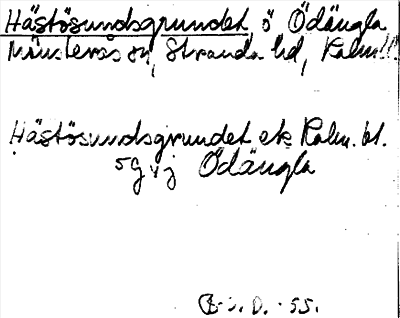 Hästösundsgrundet, ö Ödängla
Mönsterås sn, Stranda hd, Kalm. l.
Hästösundsgrundet ek Kalm. bl.
5g vj Ödängla
55.